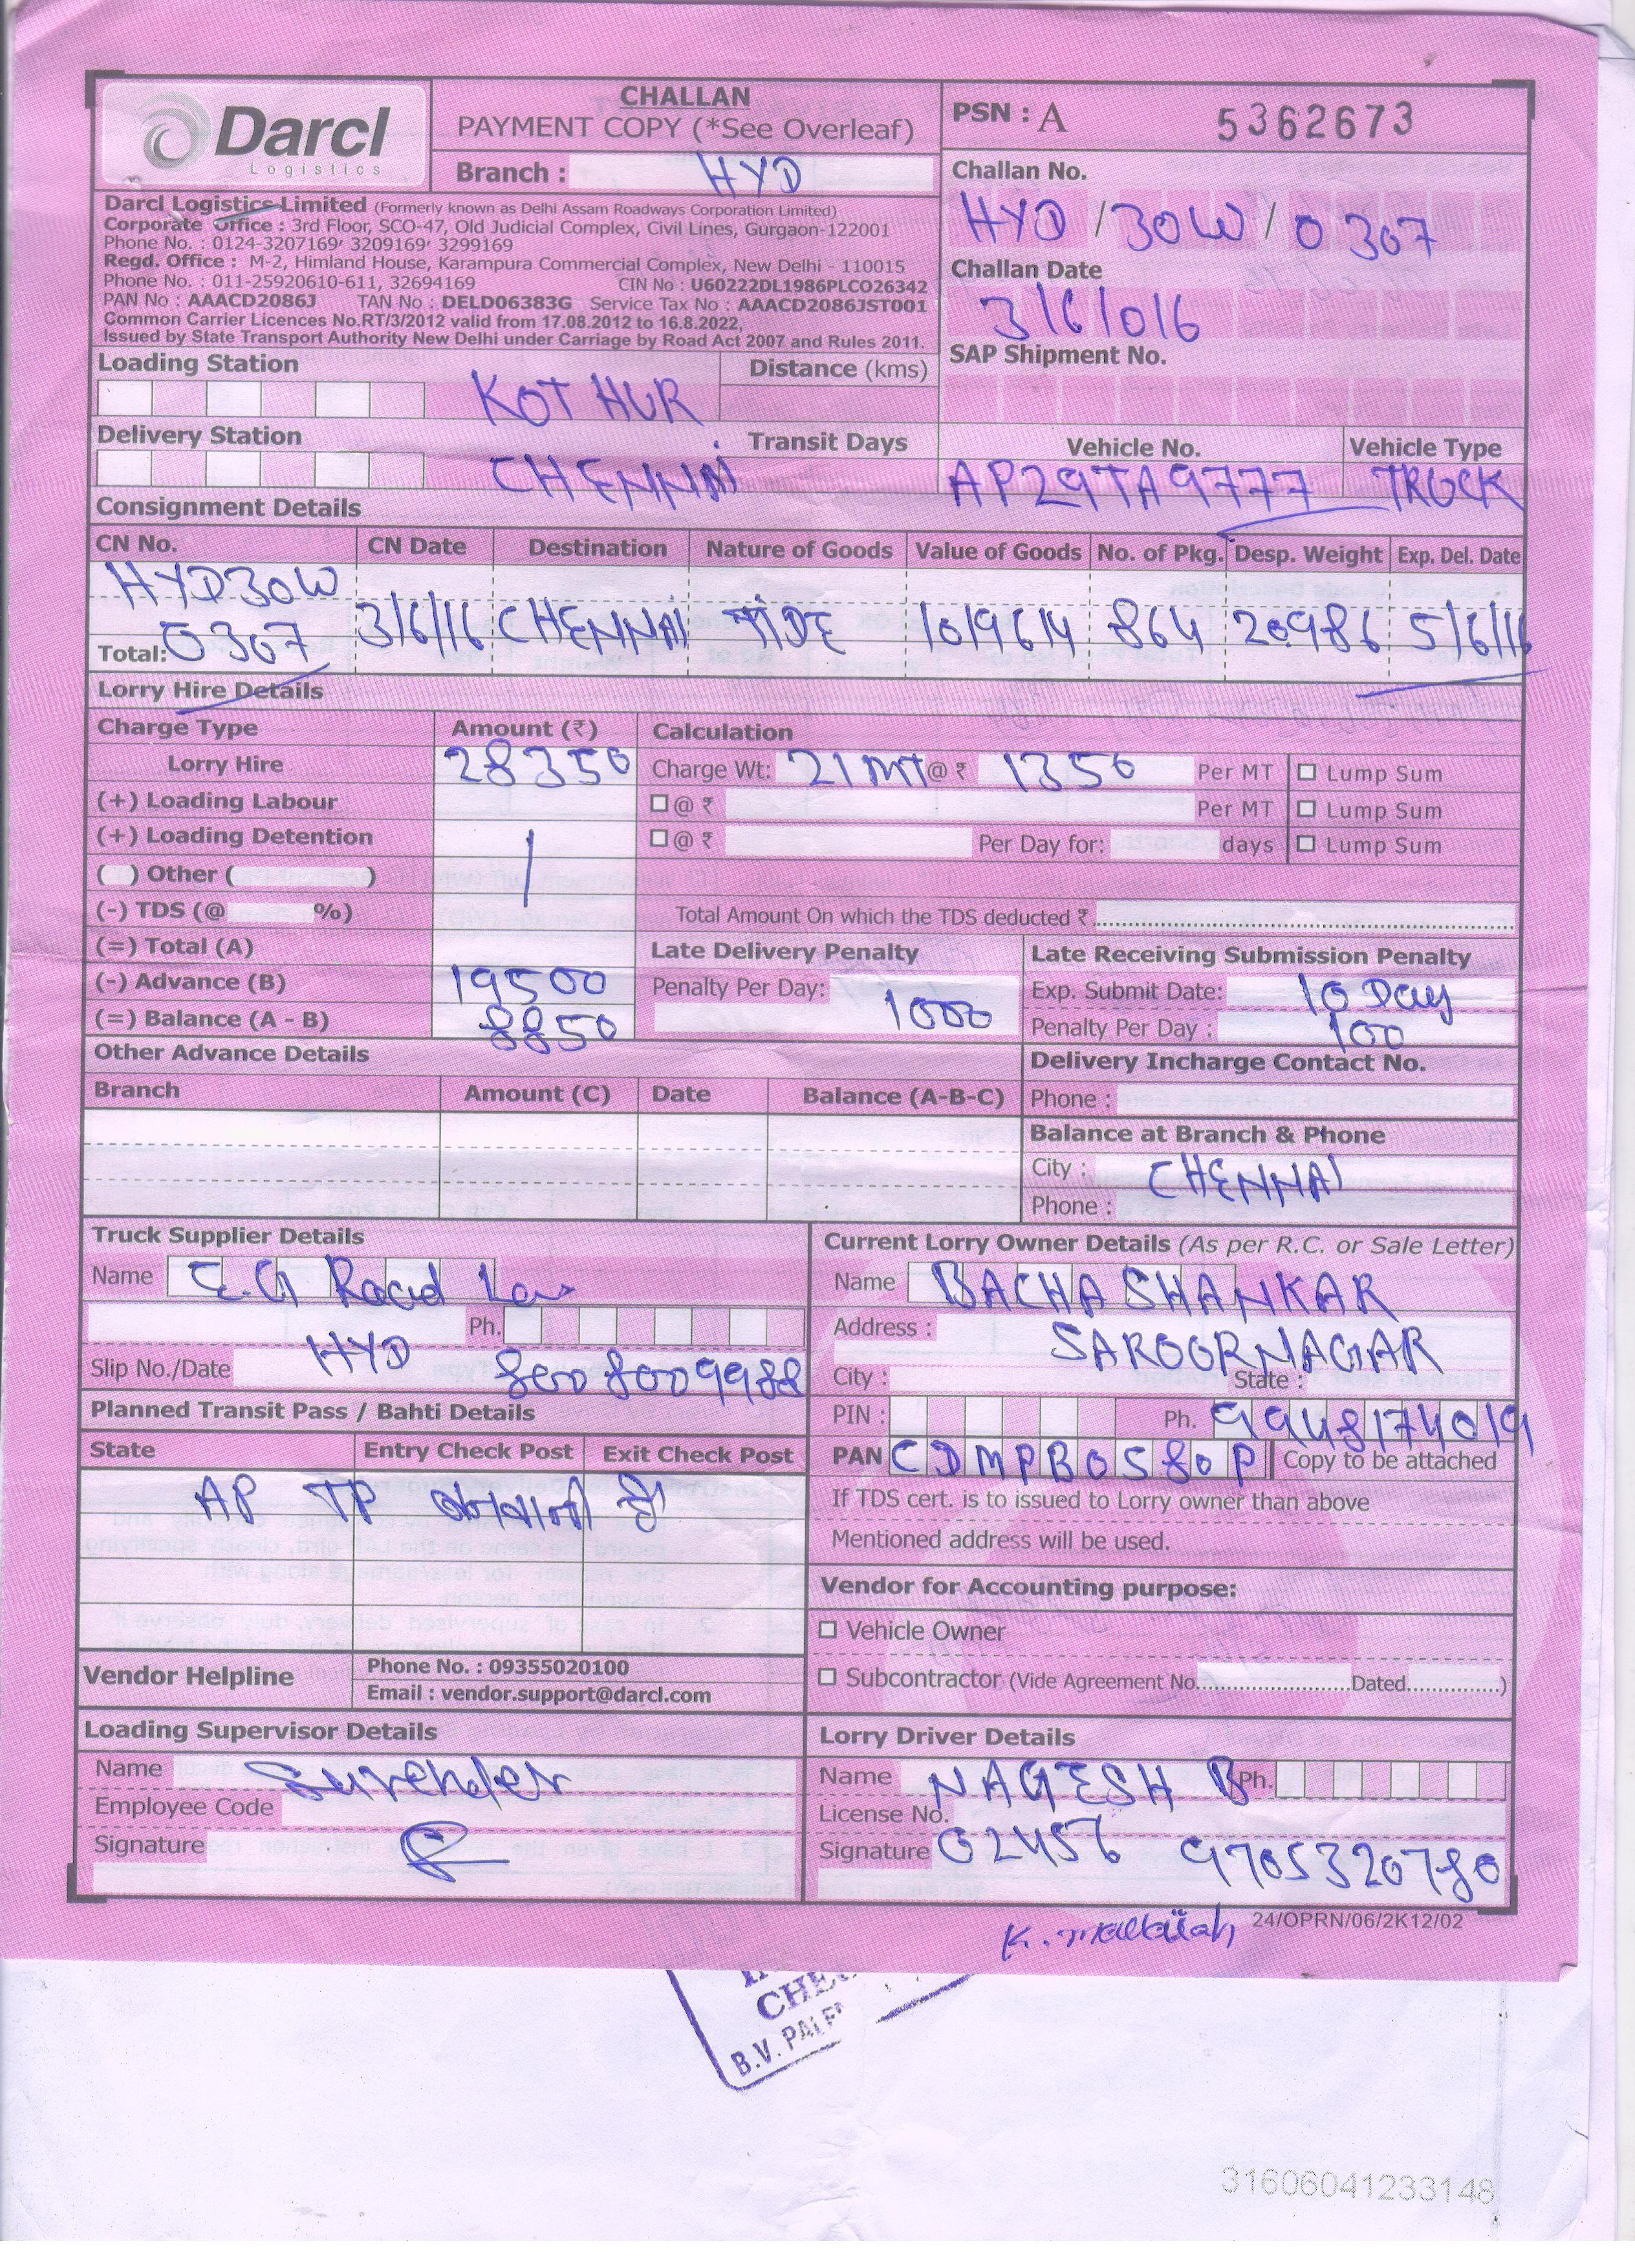 Darcl
Logistics
CHALLAN
PAYMENT COPY (*See Overleaf)
Branch : HYD
PSN : A 5362673
Challan No.
HYD / 30W / 0367
Challan Date
3/6/016
SAP Shipment No.
Darcl Logistics Limited (Formerly known as Delhi Assam Roadways Corporation Limited)
Corporate Office : 3rd Floor, SCO-47, Old Judicial Complex, Civil Lines, Gurgaon-122001
Phone No. : 0124-3207169, 3209169, 3299169
Regd. Office : M-2, Himland House, Karampura Commercial Complex, New Delhi - 110015
Phone No. : 011-25920610-611, 32694169 CIN No : U60222DL1986PLCO26342
PAN No : AAACD2086J TAN No : DELD06383G Service Tax No : AAACD2086JST001
Common Carrier Licences No.RT/3/2012 valid from 17.08.2012 to 16.8.2022,
Issued by State Transport Authority New Delhi under Carriage by Road Act 2007 and Rules 2011.
Loading Station KOTHUR Distance (kms)
Delivery Station CHENNAI Transit Days
Vehicle No. Vehicle Type
AP29TA9777 TRUCK
Consignment Details
CN No. CN Date Destination Nature of Goods Value of Goods No. of Pkg. Desp. Weight Exp. Del. Date
HYD30W
Total: 0367 3/6/16 CHENNAI TIDE 1019614 864 20986 5/6/16
Lorry Hire Details
Charge Type Amount (₹) Calculation
Lorry Hire 28350 Charge Wt: 21 MT @ ₹ 1350 Per MT Lump Sum
(+) Loading Labour @ ₹ Per MT Lump Sum
(+) Loading Detention @ ₹ Per Day for: days Lump Sum
( ) Other ( )
(-) TDS (@ %) Total Amount On which the TDS deducted ₹
(=) Total (A) Late Delivery Penalty Late Receiving Submission Penalty
(-) Advance (B) 19500 Penalty Per Day: 1000 Exp. Submit Date: 10 Day
(=) Balance (A - B) 8850 Penalty Per Day : 100
Other Advance Details Delivery Incharge Contact No.
Branch Amount (C) Date Balance (A-B-C) Phone :
Balance at Branch & Phone
City : CHENNAI
Phone :
Truck Supplier Details
Name Road
Ph.
Slip No./Date HYD 8008009988
Current Lorry Owner Details (As per R.C. or Sale Letter)
Name BACHA SHANKAR
Address : SAROORNAGAR
City : State :
PIN : Ph. 9948174019
PAN CDMPB0580P Copy to be attached
If TDS cert. is to issued to Lorry owner than above
Mentioned address will be used.
Planned Transit Pass / Bahti Details
State Entry Check Post Exit Check Post
AP TP है
Vendor for Accounting purpose:
Vehicle Owner
Subcontractor (Vide Agreement No. Dated )
Vendor Helpline Phone No. : 09355020100
Email : vendor.support@darcl.com
Loading Supervisor Details
Name Surender
Employee Code
Signature
Lorry Driver Details
Name NAGESH B Ph.
License No.
Signature 02456 9705320780
K. mallaiah
24/OPRN/06/2K12/02
B.V. PALE
31606041233148